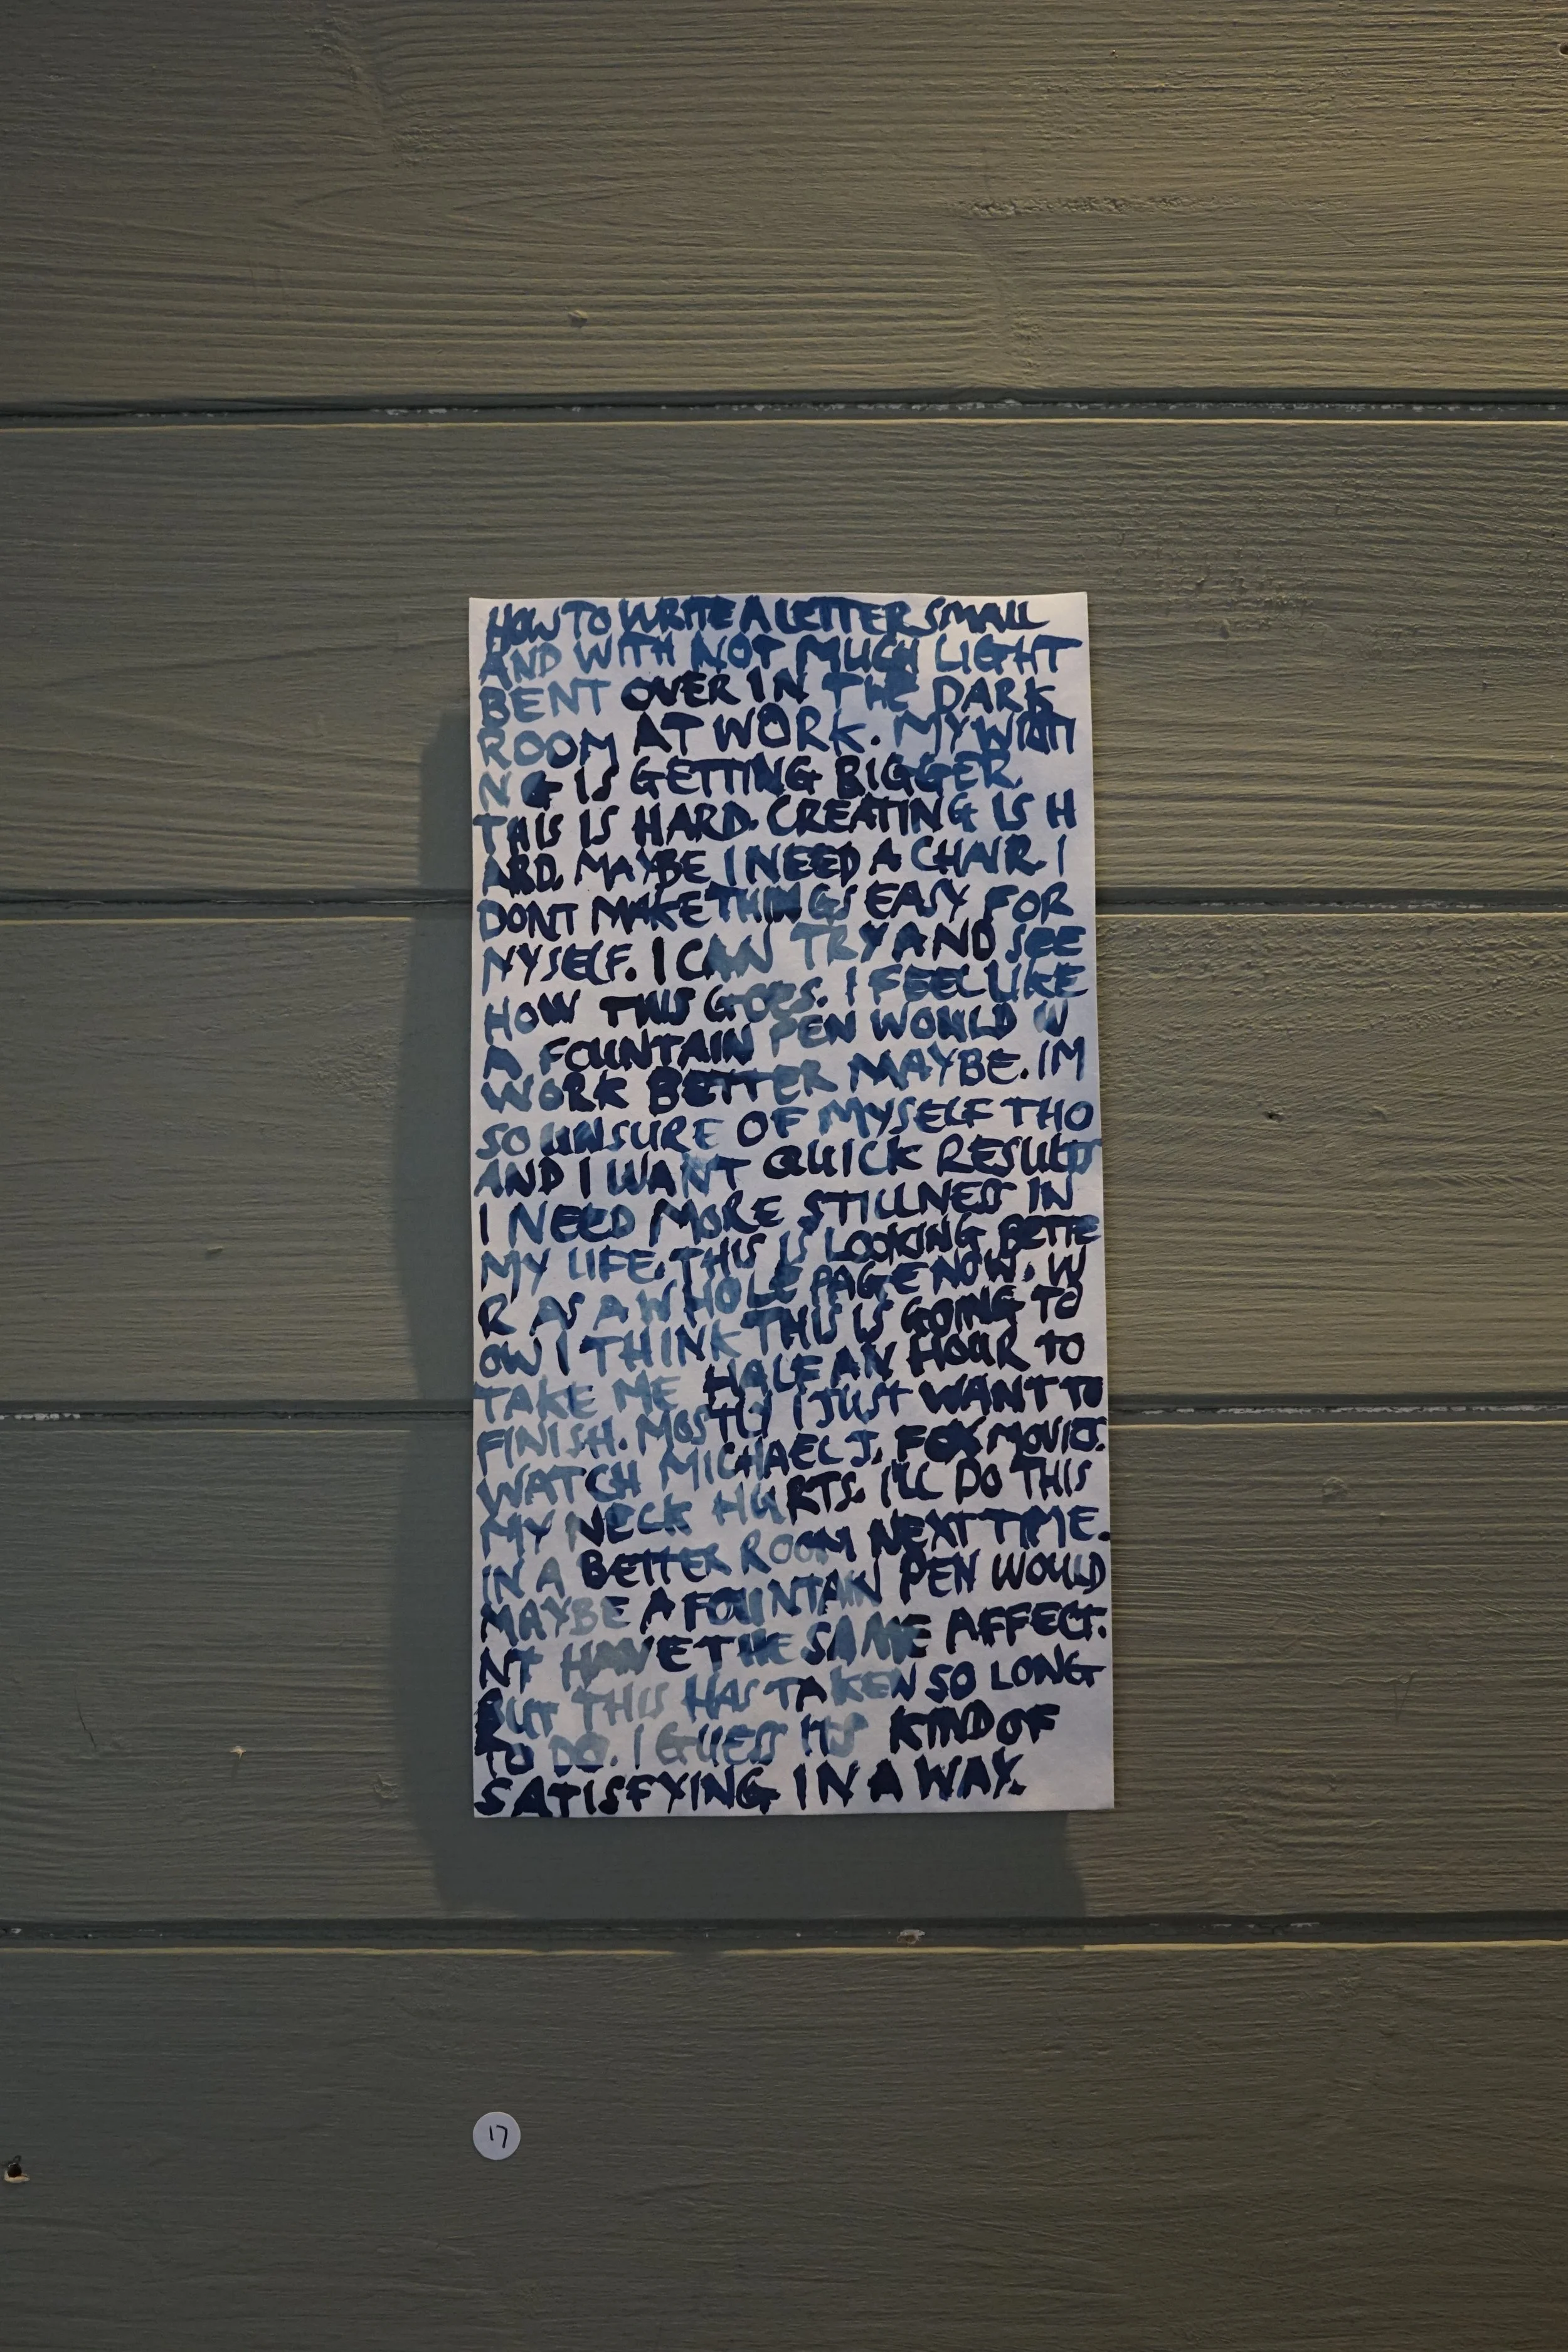 HOW TO WRITE A LETTER SMALL
AND WITH NOT MUCH LIGHT
BENT OVER IN THE DARK
ROOM AT WORK. MY WRITI
NG IS GETTING BIGGER.
THIS IS HARD. CREATING IS H
ARD. MAYBE I NEED A CHAIR. I
DONT MAKE THINGS EASY FOR
MYSELF. I CAN TRY AND SEE
HOW THIS GOES. I FEEL LIKE
A FOUNTAIN PEN WOULD W
WORK BETTER MAYBE. IM
SO UNSURE OF MYSELF THO
AND I WANT QUICK RESULTS
I NEED MORE STILLNESS IN
MY LIFE. THIS IS LOOKING BETTE
R AS A WHOLE PAGE NOW. W
OW I THINK THIS IS GOING TO
TAKE ME HALF AN HOUR TO
FINISH. MOSTLY I JUST WANT TO
WATCH MICHAEL J. FOX MOVIES.
MY NECK HURTS. I'LL DO THIS
IN A BETTER ROOM NEXT TIME.
MAYBE A FOUNTAIN PEN WOULD
NT HAVE THE SAME AFFECT.
BUT THIS HAS TAKEN SO LONG
TO DO. I GUESS ITS KIND OF
SATISFYING IN A WAY.
17